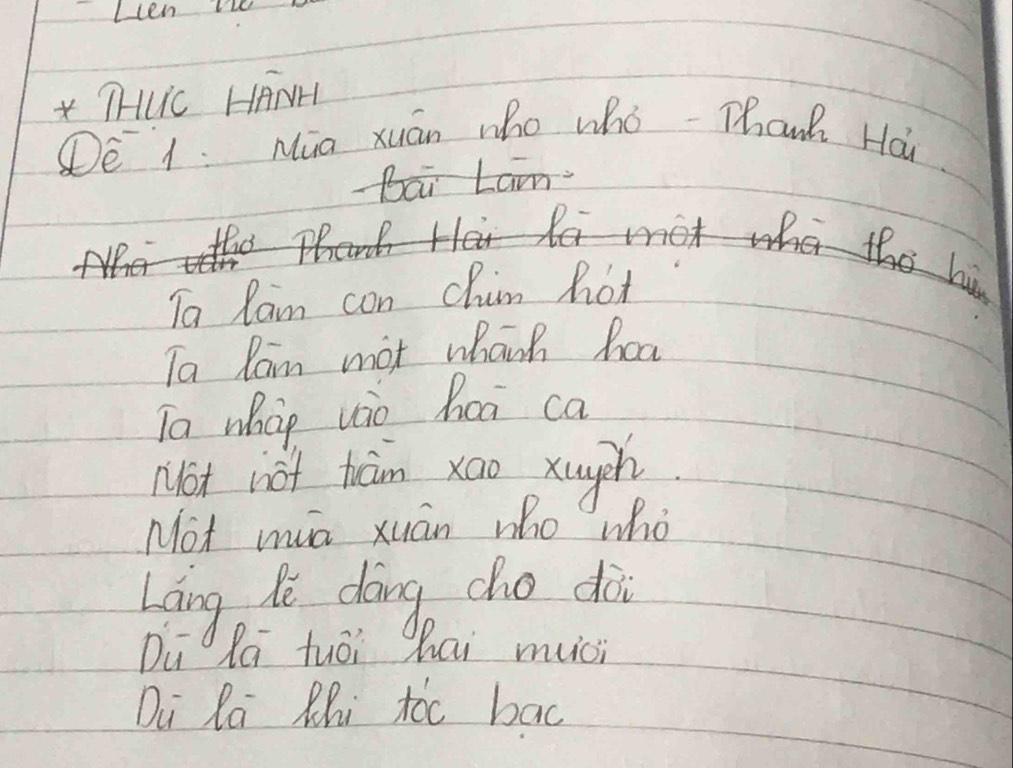 - Liên hệ
* THỰC HÀNH
Đề 1: Mùa xuân nho nhỏ - Thanh Hải.
- Bài Làm -
Nhà văn thơ Thanh Hải là một nhà thơ hiện
Ta làm con chim hót
Ta làm một nhành hoa
Ta nhập vào hoà ca
Một nốt trầm xao xuyến.
Một mùa xuân nho nhỏ
Lặng lẽ dâng cho đời
Dù là tuổi hai mươi
Dù là khi tóc bạc